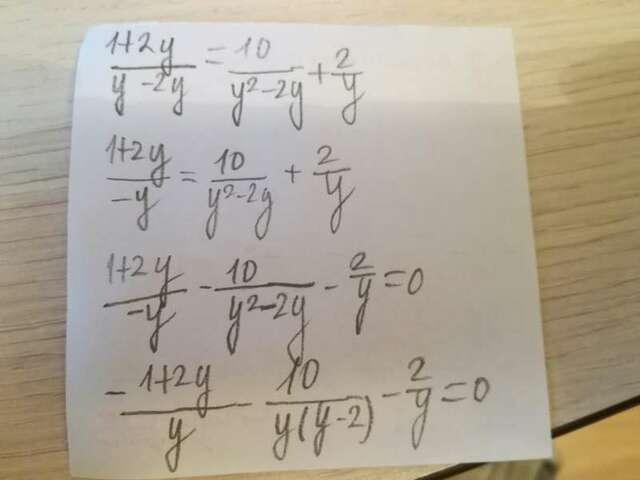 (1+2y)/(y-2y) = 10/(y²-2y) + 2/y
(1+2y)/(-y) = 10/(y²-2y) + 2/y
(1+2y)/(-y) - 10/(y²-2y) - 2/y = 0
-(1+2y)/y - 10/(y(y-2)) - 2/y = 0